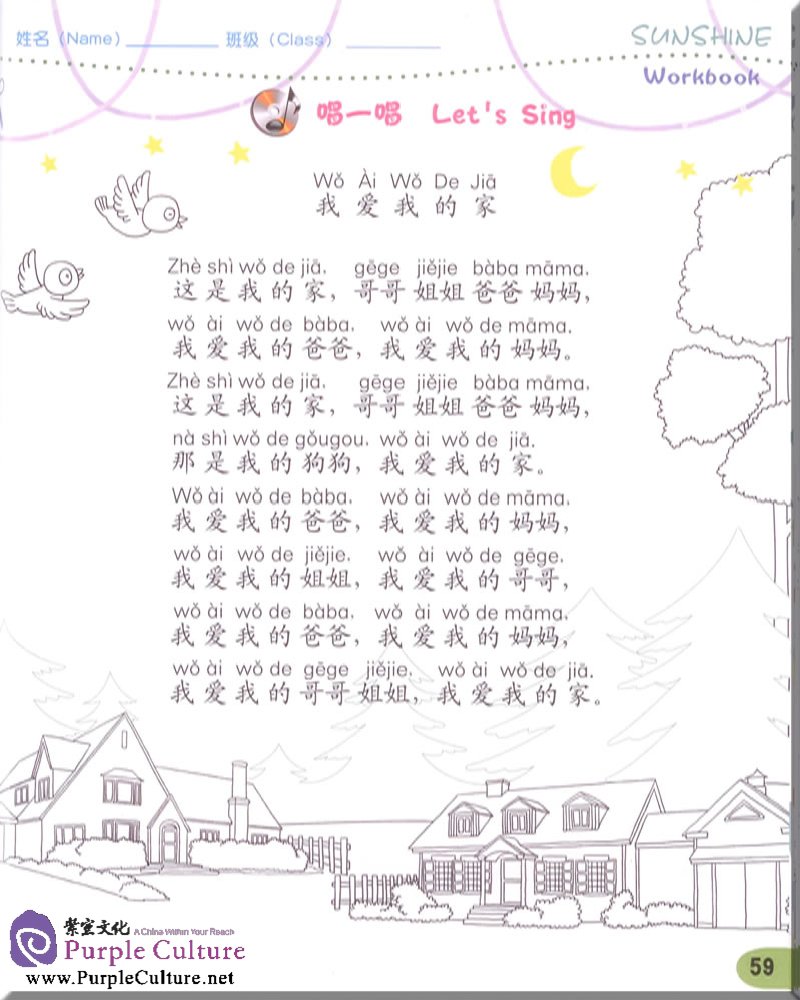 姓名（Name）__________ 班级（Class）__________
SUNSHINE
Workbook
唱一唱 Let's Sing
Wǒ Ài Wǒ De Jiā
我 爱 我 的 家
Zhè shì wǒ de jiā, gēge jiějie bàba māma,
这 是 我 的 家，哥哥 姐姐 爸爸 妈妈，
wǒ ài wǒ de bàba, wǒ ài wǒ de māma.
我 爱 我 的 爸爸，我 爱 我 的 妈妈。
Zhè shì wǒ de jiā, gēge jiějie bàba māma,
这 是 我 的 家，哥哥 姐姐 爸爸 妈妈，
nà shì wǒ de gǒugou, wǒ ài wǒ de jiā.
那 是 我 的 狗狗，我 爱 我 的 家。
Wǒ ài wǒ de bàba, wǒ ài wǒ de māma,
我 爱 我 的 爸爸，我 爱 我 的 妈妈，
wǒ ài wǒ de jiějie, wǒ ài wǒ de gēge,
我 爱 我 的 姐姐，我 爱 我 的 哥哥，
wǒ ài wǒ de bàba, wǒ ài wǒ de māma,
我 爱 我 的 爸爸，我 爱 我 的 妈妈，
wǒ ài wǒ de gēge jiějie, wǒ ài wǒ de jiā.
我 爱 我 的 哥哥 姐姐，我 爱 我 的 家。
紫宣文化 A China Within Your Reach
Purple Culture
www.PurpleCulture.net
59